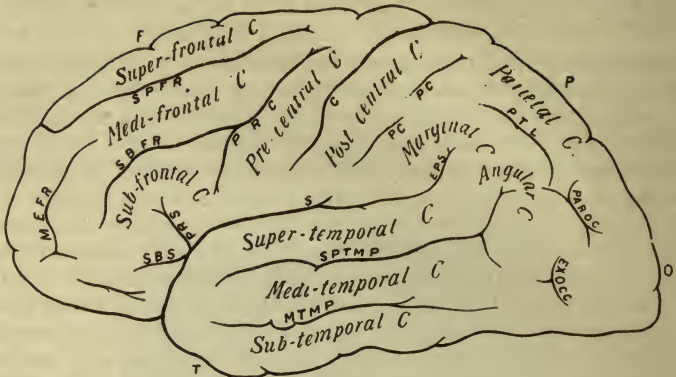 F
Super-frontal C
SPFR.
Medi-frontal C
SBFR
PRC
Pre-central C
C
Post central C
PC
PC
Parietal C.
P
PTL
Marginal C
EPS
Angular C
PAROC
EXOCC
O
MEFR
Sub-frontal C
PRS
SBS
S
Super-temporal C
SPTMP
Medi-temporal C
MTMP
Sub-temporal C
T